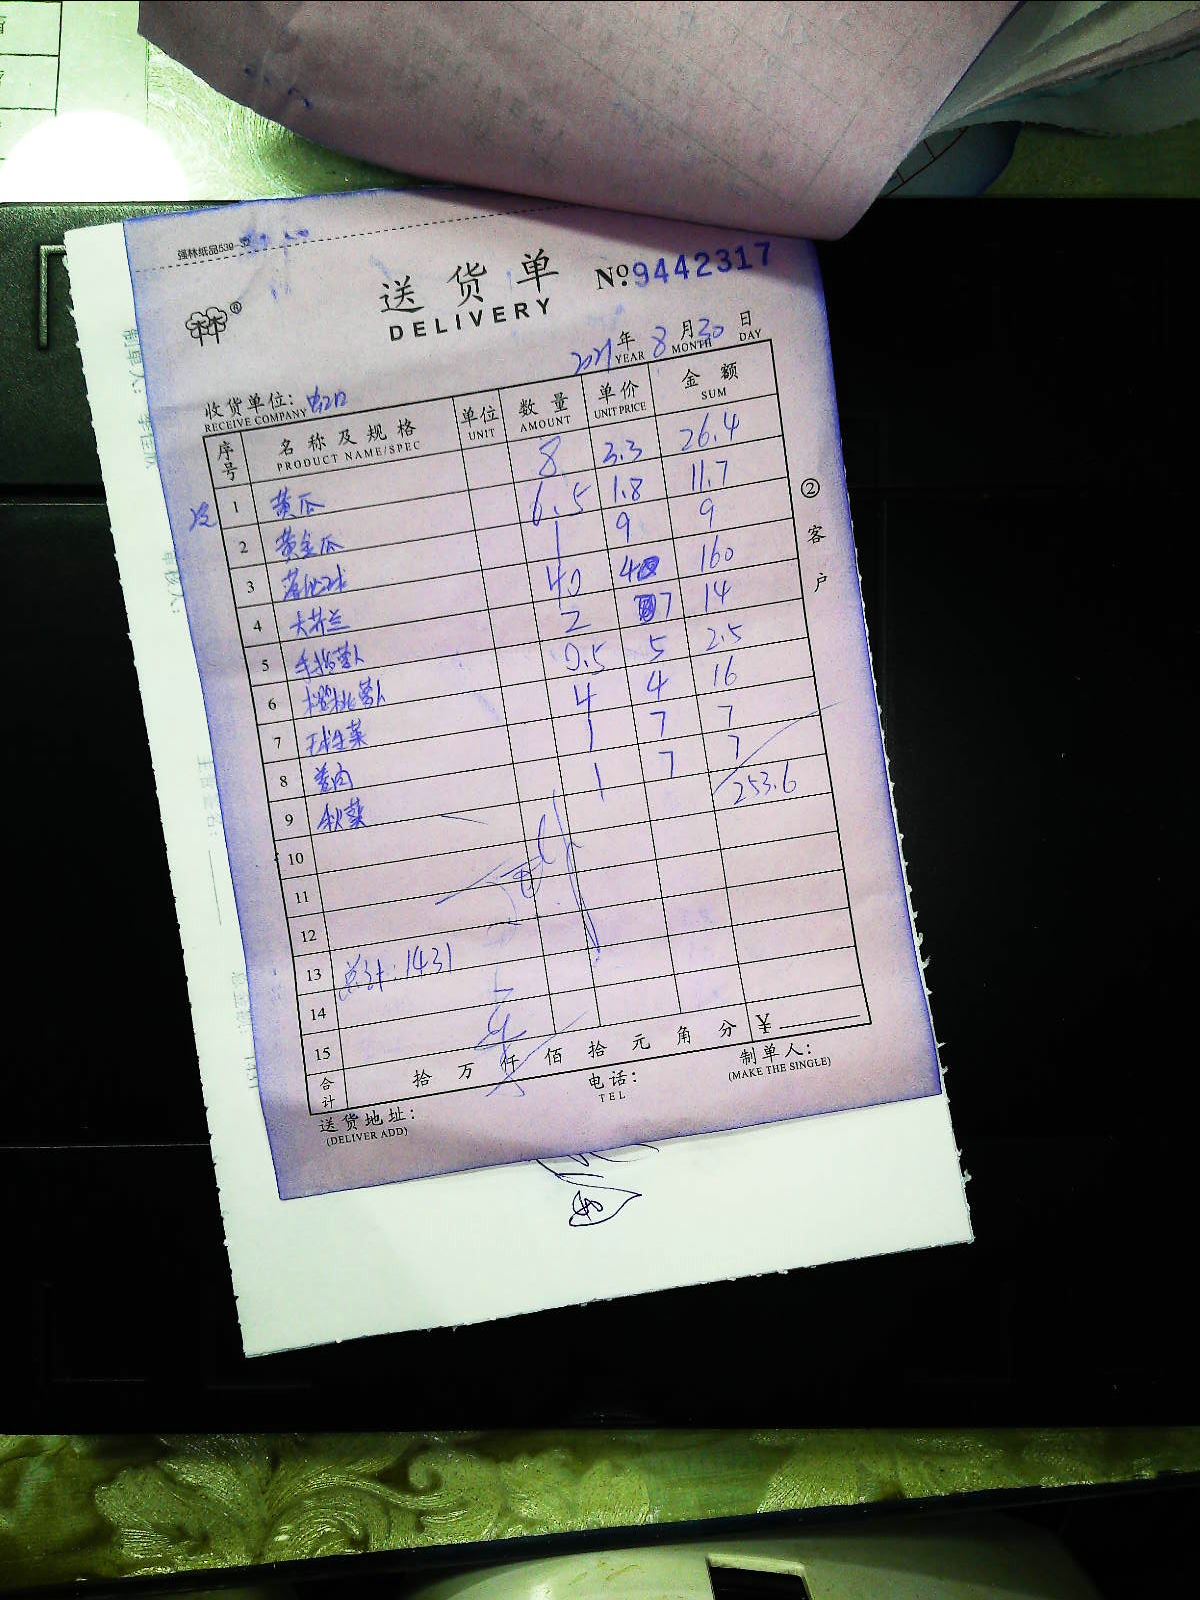 强林纸品539-32
林®
送货单 №9442317
DELIVERY
2021年 8月30日
YEAR MONTH DAY
收货单位:
RECEIVE COMPANY
序号 名称及规格 单位 数量 单价 金额
PRODUCT NAME/SPEC UNIT AMOUNT UNIT PRICE SUM
1 黄瓜 8 3.3 26.4
2 黄金瓜 6.5 1.8 11.7
3 1 9 9
4 大芥兰 40 4 160
5 手指萝卜 2 7 14
6 樱桃萝卜 0.5 5 2.5
7 球生菜 4 4 16
8 姜肉 1 7 7
9 秋葵 1 7 7
10 253.6
11
12
13 总计:1431
14
15
合计 拾 万 仟 佰 拾 元 角 分 ¥
送货地址: 电话: 制单人:
(DELIVER ADD) TEL (MAKE THE SINGLE)
②客户